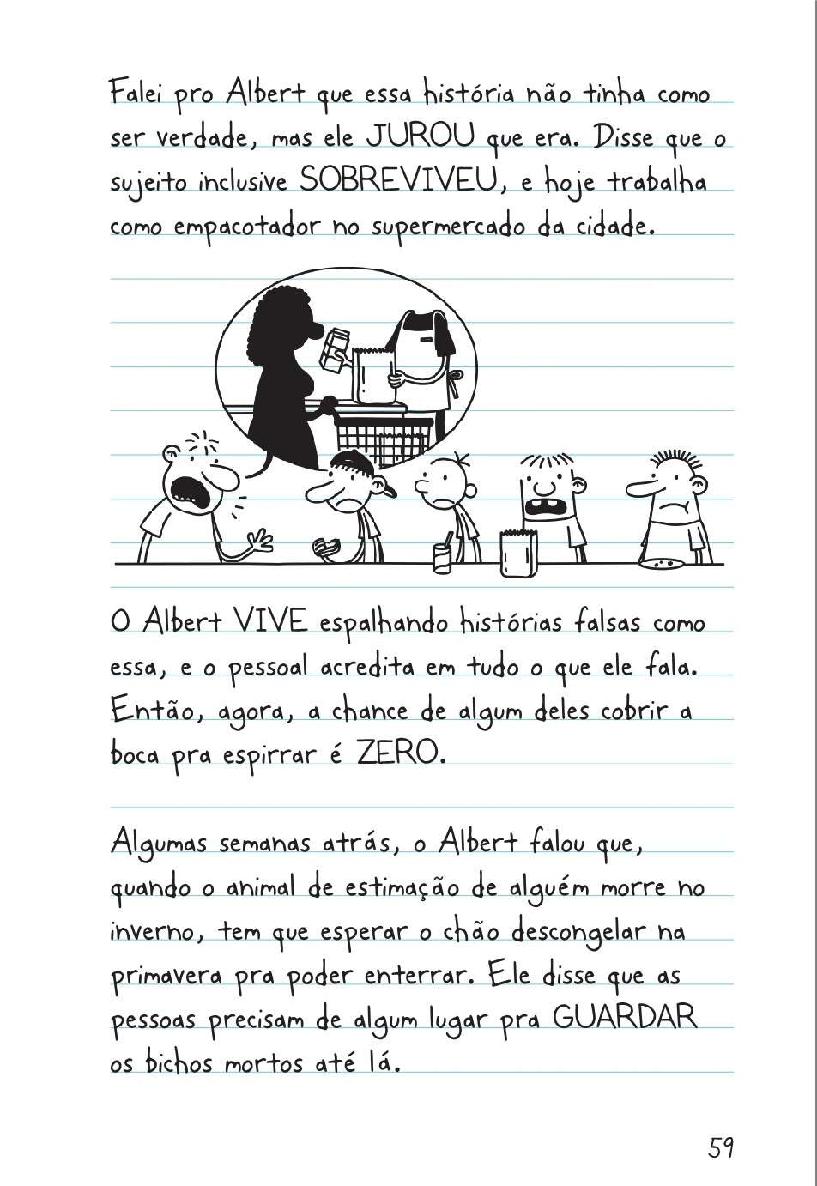 Falei pro Albert que essa história não tinha como
ser verdade, mas ele JUROU que era. Disse que o
sujeito inclusive SOBREVIVEU, e hoje trabalha
como empacotador no supermercado da cidade.
O Albert VIVE espalhando histórias falsas como
essa, e o pessoal acredita em tudo o que ele fala.
Então, agora, a chance de algum deles cobrir a
boca pra espirrar é ZERO.
Algumas semanas atrás, o Albert falou que,
quando o animal de estimação de alguém morre no
inverno, tem que esperar o chão descongelar na
primavera pra poder enterrar. Ele disse que as
pessoas precisam de algum lugar pra GUARDAR
os bichos mortos até lá.
59